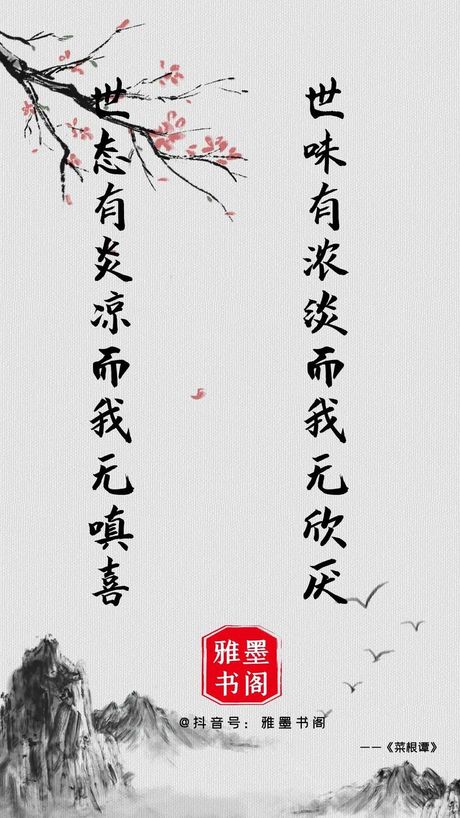 世态有炎凉而我无嗔喜
世味有浓淡而我无欣厌
雅墨
书阁
@抖音号：雅墨书阁
——《菜根谭》